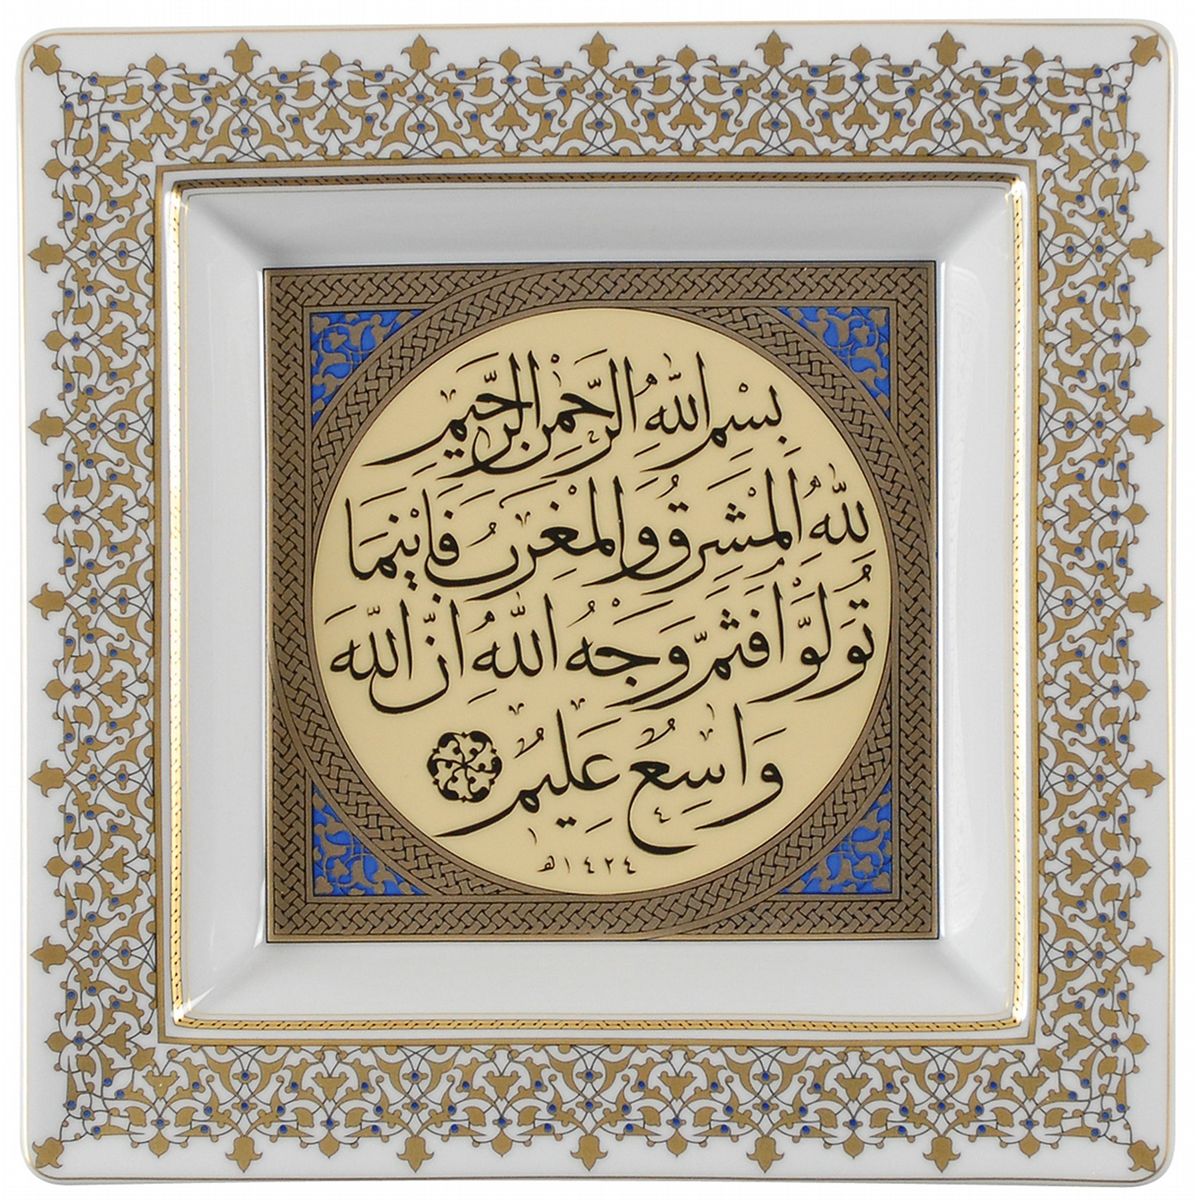 بِسْمِ اللّٰهِ الرَّحْمٰنِ الرَّحِيمِ
لِلّٰهِ الْمَشْرِقُ وَالْمَغْرِبُ فَاَيْنَمَا
تُوَلُّوْا فَثَمَّ وَجْهُ اللّٰهِ اِنَّ اللّٰهَ
وَاسِعٌ عَلِيمٌ
١٤٢٤هـ